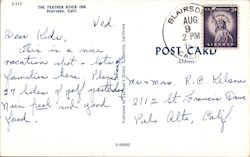 S315
THE FEATHER RIVER INN
Blairsden, Calif.
Wed.
Dear Kids,
This is a nice
vacation spot - lots of
families here. Played
27 holes of golf yesterday
Nice pool and good
food.
BLAIRSDEN
AUG
9
2
CALIF
POST CARD
Address
Mr & Mrs. B. C. Nelson
2112 St. Francis Drive
Palo Alto, Calif